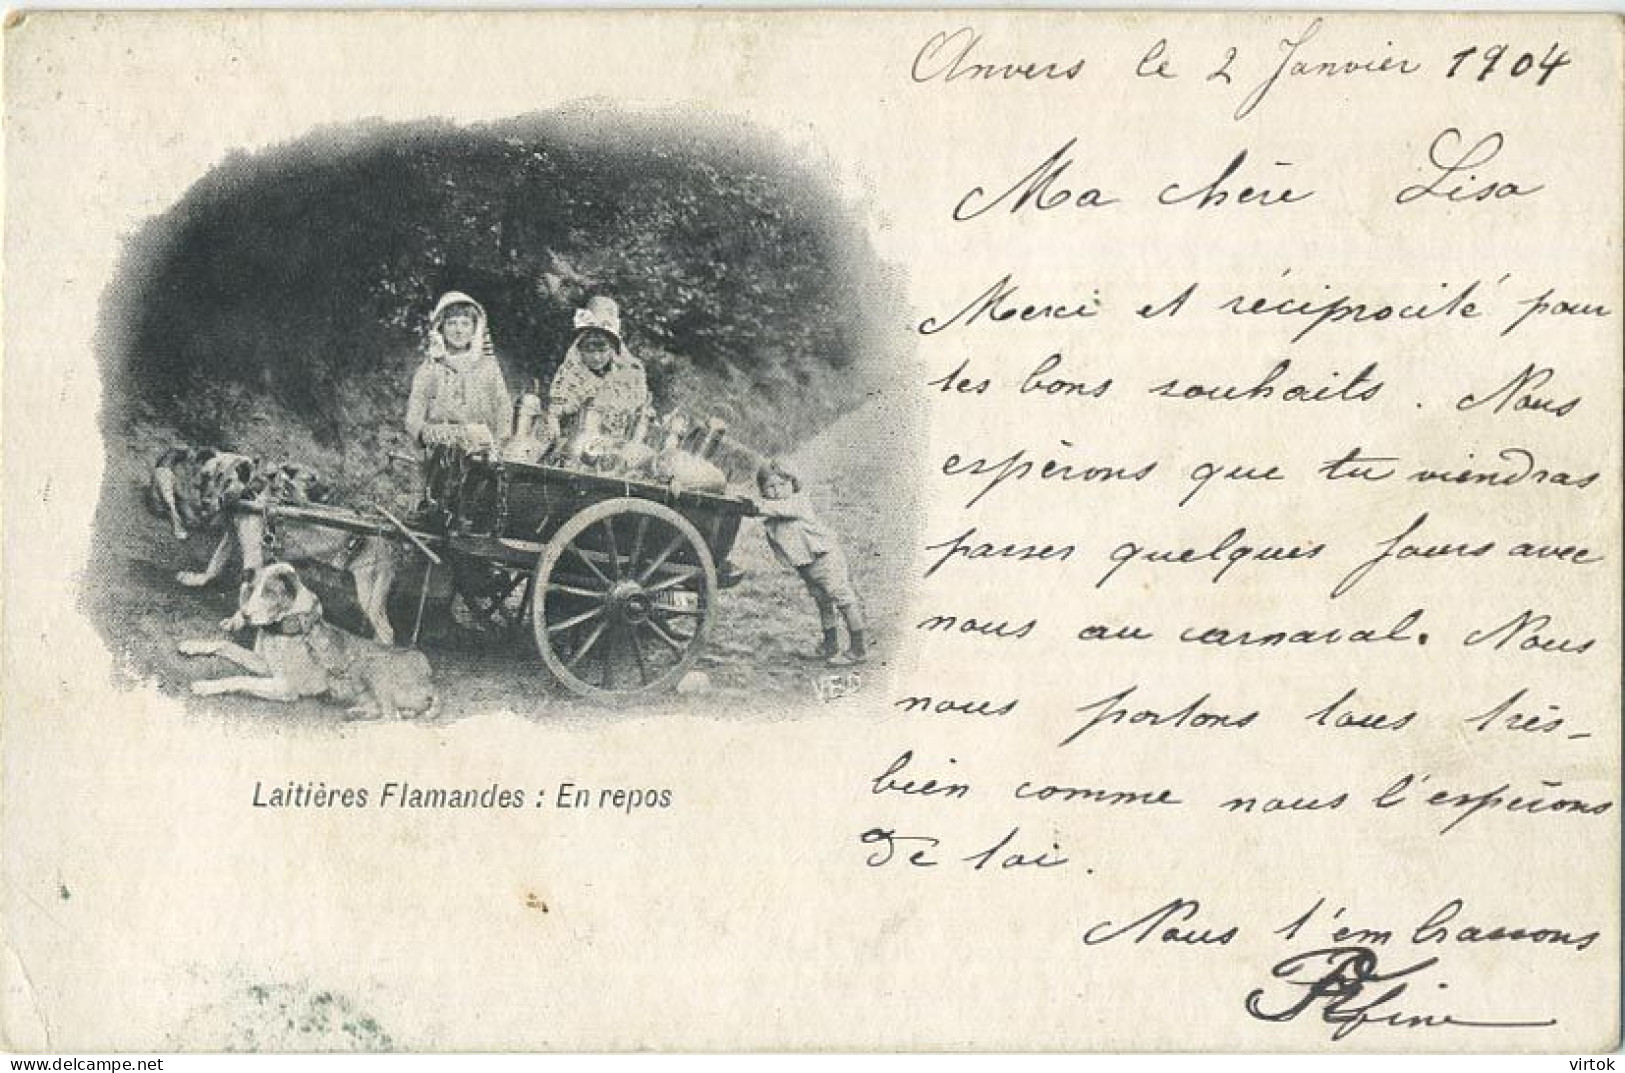 Anvers le 2 Janvier 1904
Ma chère Lisa
Merci et réciprocité pour
tes bons souhaits. Nous
espérons que tu viendras
passer quelques jours avec
nous au carnaval. Nous
nous portons tous très-
bien comme nous l'espérons
de toi.
Nous t'embrassons
VED
Laitières Flamandes : En repos
delcampe.net
virtok